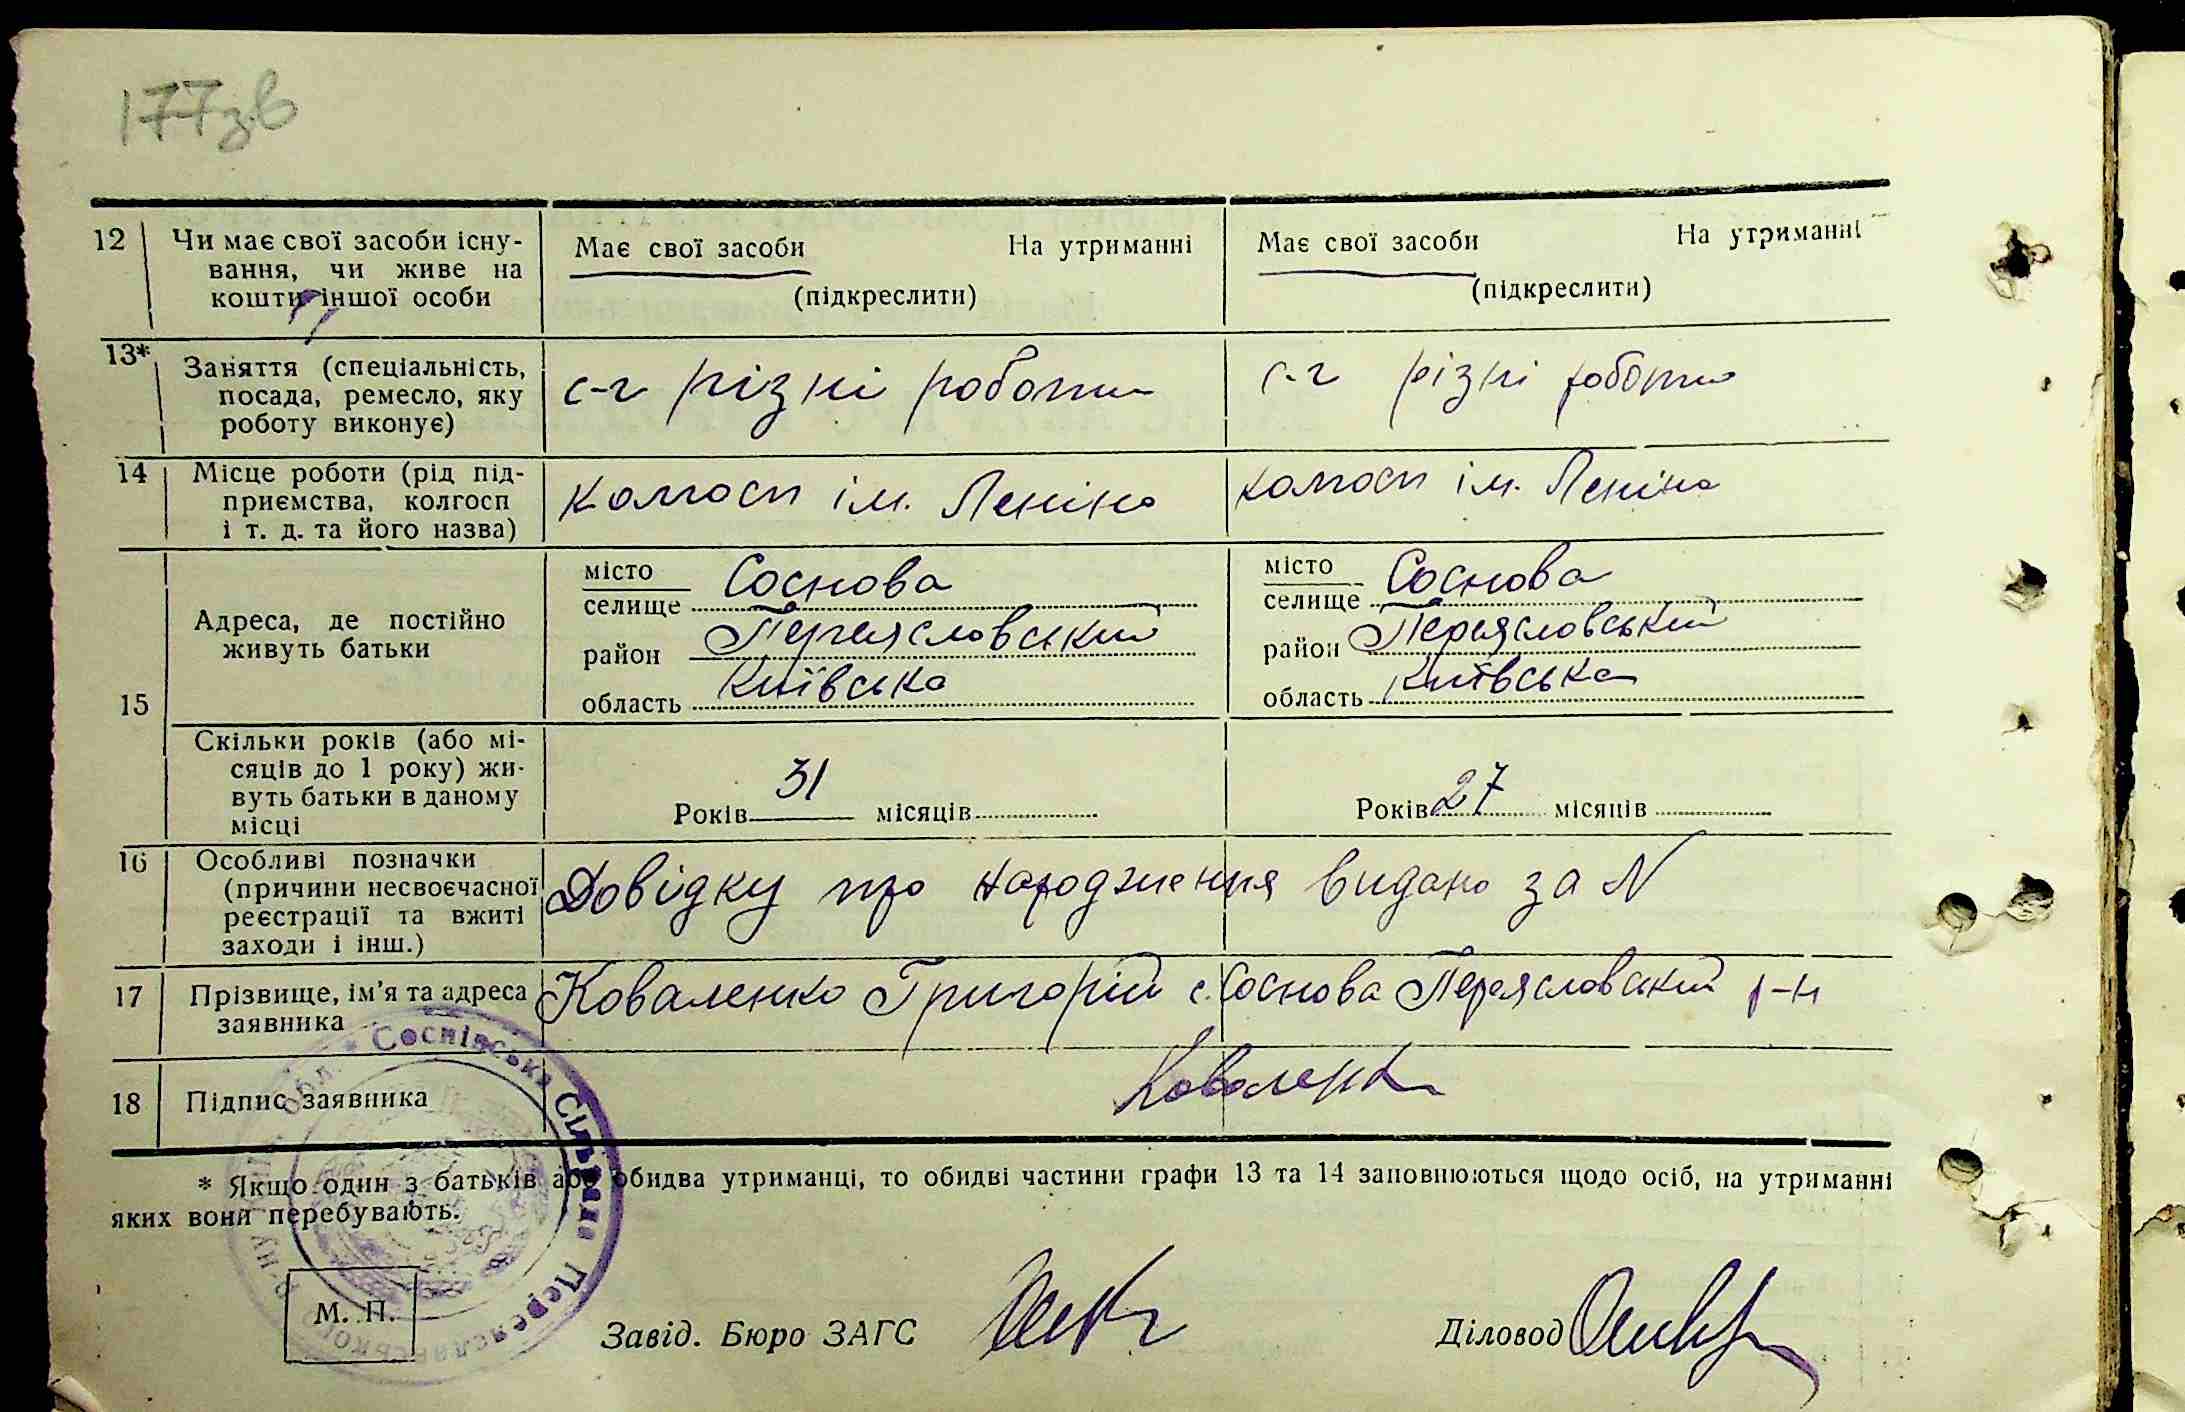 177зв
12 Чи має свої засоби існу- Має свої засоби На утриманні Має свої засоби На утриманні
вання, чи живе на
кошти іншої особи (підкреслити) (підкреслити)
13* Заняття (спеціальність,
посада, ремесло, яку с-г різні роботи с-г різні роботи
роботу виконує)
14 Місце роботи (рід під-
приємства, колгосп колгосп ім. Леніна колгосп ім. Леніна
і т. д. та його назва)
місто Соснова місто Соснова
селище селище
Адреса, де постійно
живуть батьки район Переясловський район Переясловський
15 область Київська область Київська
Скільки років (або мі-
сяців до 1 року) жи-
вуть батьки в даному Років 31 місяців Років 27 місяців
місці
16 Особливі позначки
(причини несвоєчасної Довідку про народження видано за N
реєстрації та вжиті
заходи і інш.)
17 Прізвище, ім'я та адреса Коваленко Григорій с. Соснова Переясловський р-н
заявника
18 Підпис заявника
* Якщо один з батьків або обидва утриманці, то обидві частини графи 13 та 14 заповнюються щодо осіб, на утриманні
яких вони перебувають.
М. П.
Соснівська Сільська Переяславського р-ну обл.
Завід. Бюро ЗАГС Діловод